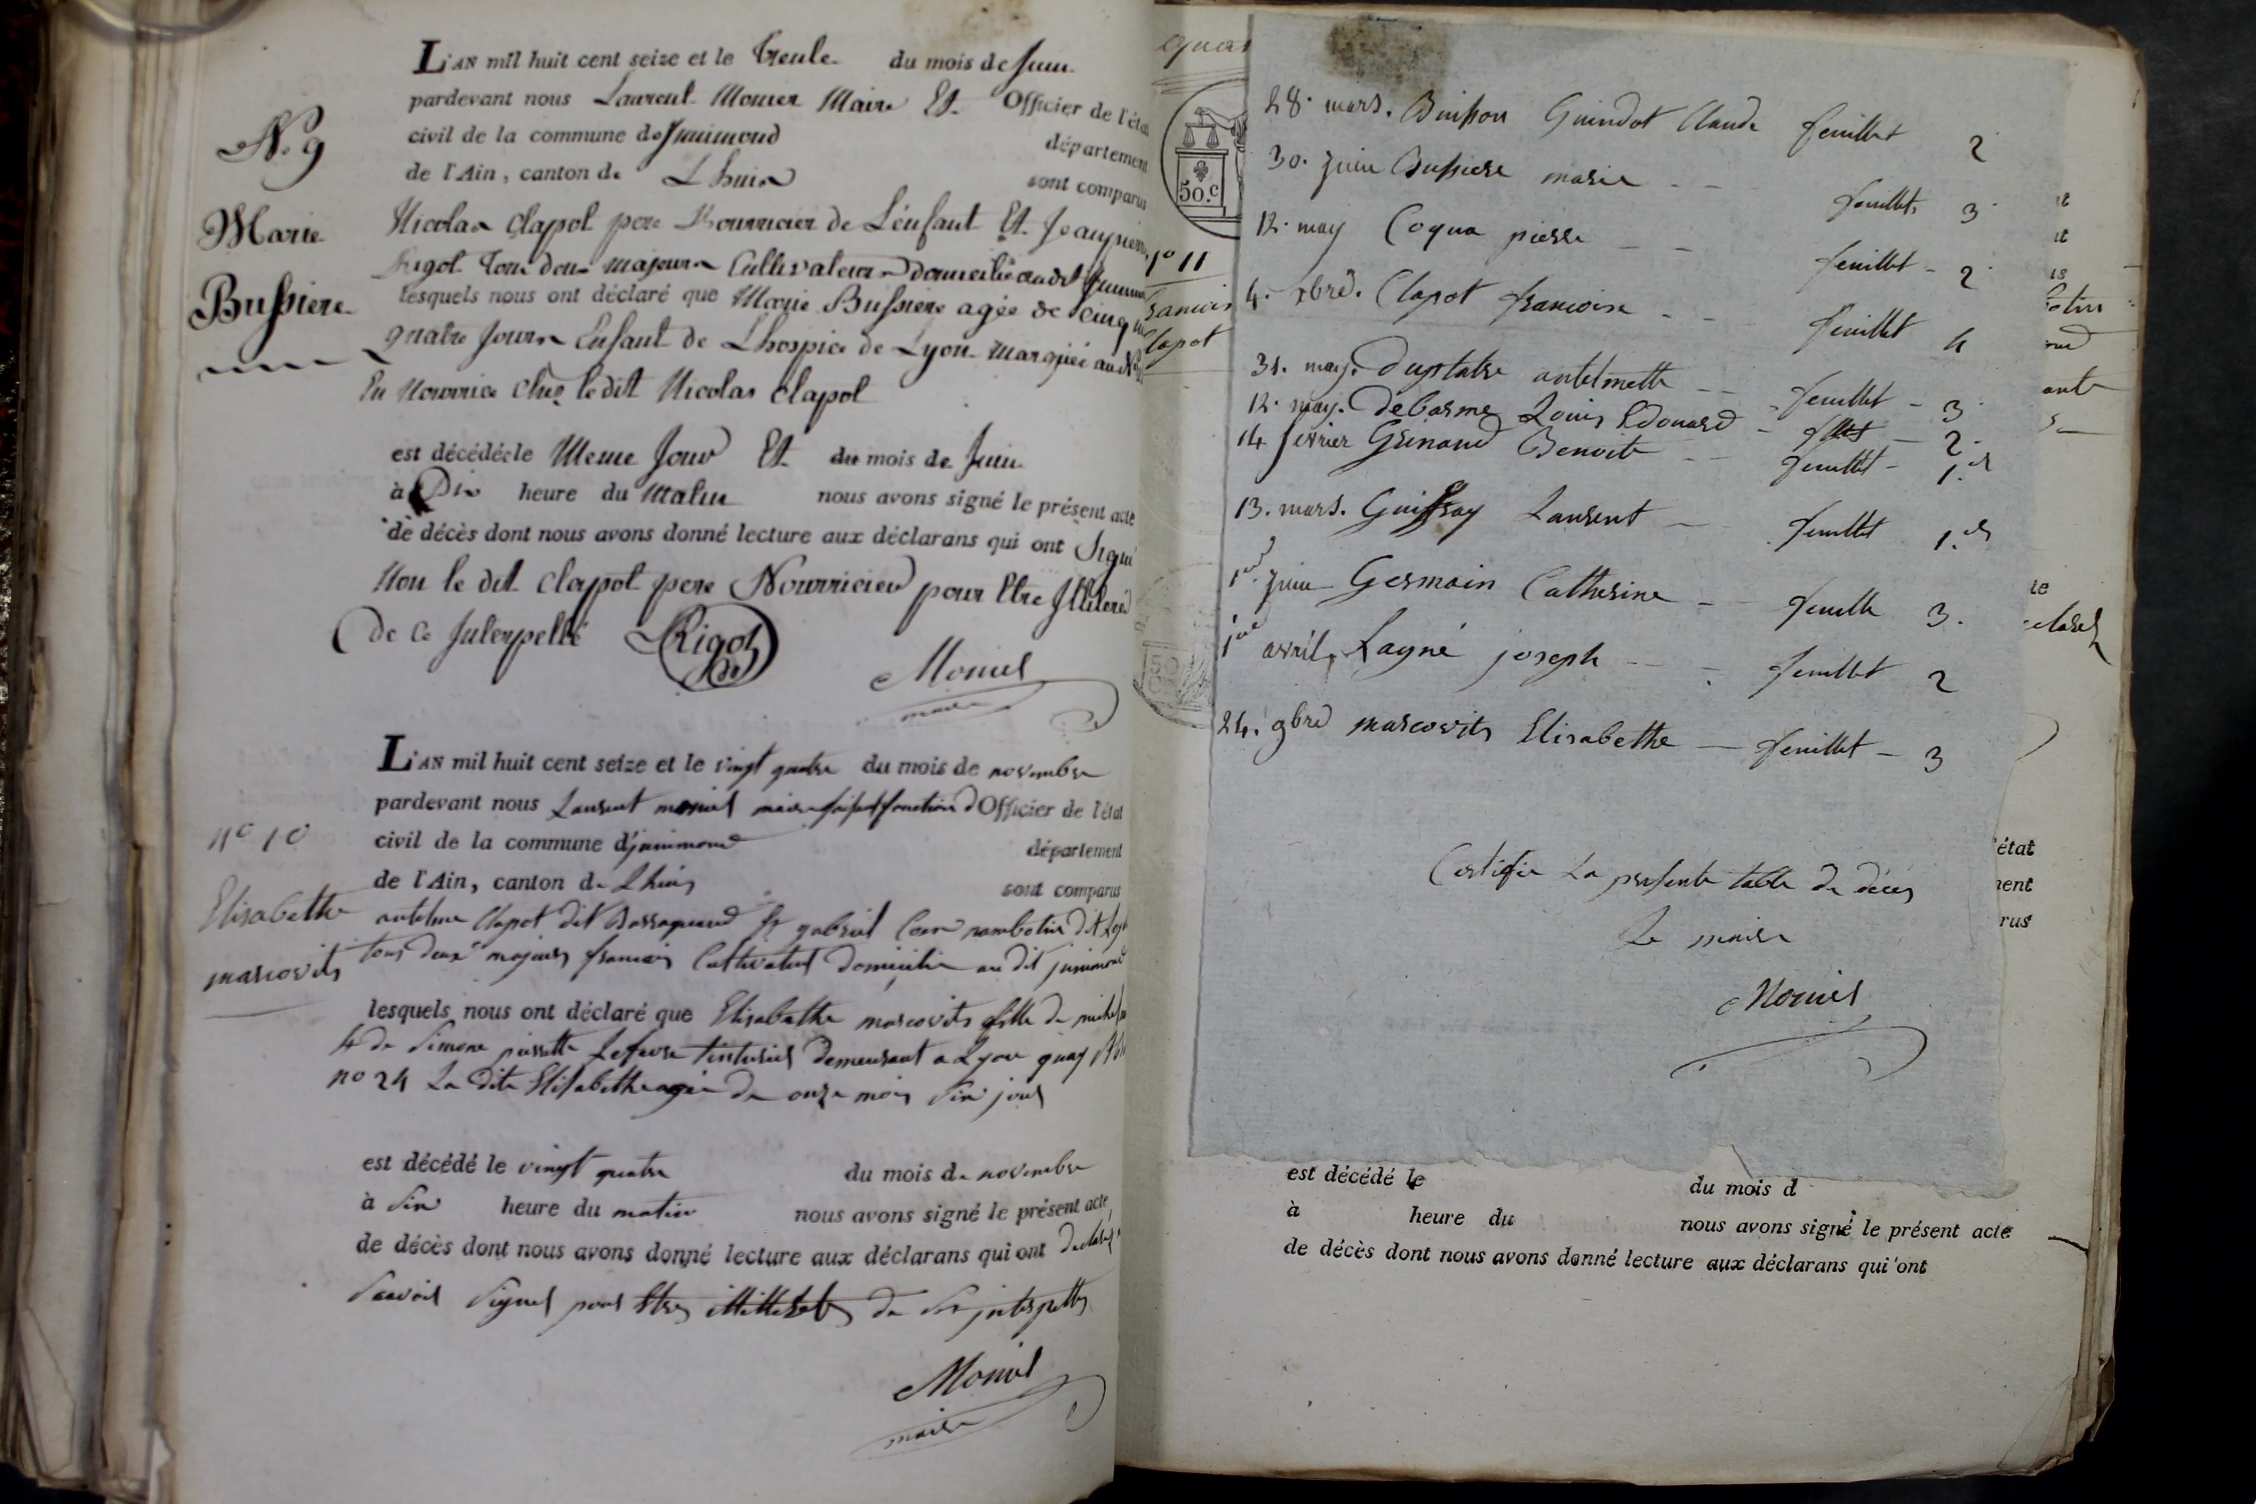 L'AN mil huit cent seize et le Trente du mois de Juin
pardevant nous Laurent Monier Maire Et Officier de l'état
civil de la commune de Junimond département
de l'Ain, canton de Lhuis sont comparus
Nicolas Clapot pere Nourricier de L'enfant Et
Rigot Tous deux majeurs Cultivateurs domicilié audit
lesquels nous ont déclaré que Marie Bussiere agée de cinq
quatre jours Enfant de Lhospice de Lyon Marquée au
En Nourrice Chez le dit Nicolas Clapot
est décédée le Meme Jour Et du mois de Juin
à Dix heure du Matin nous avons signé le présent acte
de décès dont nous avons donné lecture aux déclarans qui ont signé
Non le dit Clapot pere Nourricier pour Etre Illiteré
De Ce Interpellé Rigot
Monier
maire
N.° 9
Marie
Bussiere
L'AN mil huit cent seize et le vingt quatre du mois de novembre
pardevant nous Laurent monier maire faisant fonction d'Officier de l'état
civil de la commune d'junimond département
de l'Ain, canton de Lhuis sont comparus
antelme Clapot dit Barraquand et gabriel
tous deux majeurs francais Cultivateur domicilie au dit junimond
lesquels nous ont déclaré que Elisabethe marcovits fille de
et de Simone pierrette Lefevre teinturier Demeurant a Lyon quay
no 24 La dite Elisabethe agée de onze mois six jour
est décédé le vingt quatre du mois de novembre
à six heure du matin nous avons signé le présent acte
de décès dont nous avons donné lecture aux déclarans qui ont
savoir signer pour Etre de ce interpellés
Monier
maire
n° 10
Elisabethe
marcovits
50.c
n° 11
francois
Clapot
28. mars. Buisson Guindot Claude feuillet 2
30. juin Bussiere marie feuillet 3
12. may Coqua pierre feuillet 2
4. xbre. Clapot francoise feuillet 4
31. may. Duplatre antelmette feuillet 3
12. may. Debarme Louis Edouard 2
14 fevrier Grinand Benoite feuillet 1.er
13. mars. Guiffray Laurent feuillet 1.er
1er juin Germain Catherine feuille 3
1er avril, Layné joseph feuillet 2
24. 9bre marcovits Elisabethe feuillet 3
Certifie La presente table de décès
Le maire
Monier
est décédé le du mois d
à heure du nous avons signé le présent acte
de décès dont nous avons donné lecture aux déclarans qui ont